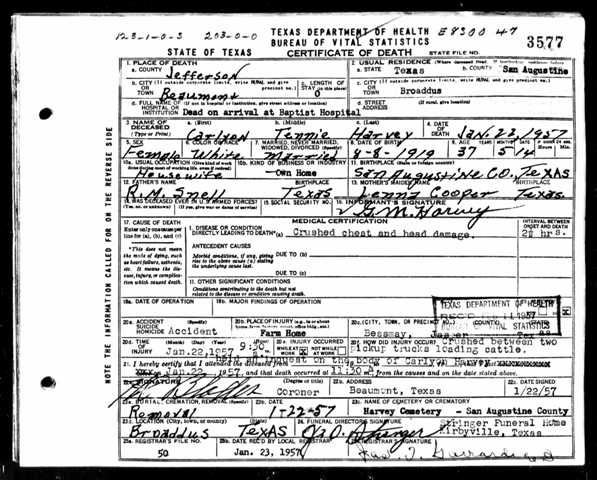 123-1-0-3 203-0-0 TEXAS DEPARTMENT OF HEALTH E8300 47
BUREAU OF VITAL STATISTICS
STATE OF TEXAS CERTIFICATE OF DEATH STATE FILE NO. 3577
1. PLACE OF DEATH 2. USUAL RESIDENCE (Where deceased lived.
a. COUNTY Jefferson a. STATE Texas b. COUNTY San Augustine
b. CITY (If outside corporate limits, write RURAL and give precinct no.) OR TOWN Beaumont c. LENGTH OF STAY 0 c. CITY (If outside corporate limits, write RURAL and give precinct no.) OR TOWN Broaddus
d. FULL NAME OF (If not in hospital or institution, give street address or location) HOSPITAL OR INSTITUTION Dead on arrival at Baptist Hospital d. STREET ADDRESS (If rural, give location)
3. NAME OF DECEASED (Type or Print) a. (First) Carlyon b. (Middle) Tennie c. (Last) Harvey 4. DATE OF DEATH Jan. 22, 1957
5. SEX Female 6. COLOR OR RACE White 7. MARRIED, NEVER MARRIED, WIDOWED, DIVORCED (Specify) Married 8. DATE OF BIRTH 4-8-1919 9. AGE YEARS 37 MONTHS DAYS
10a. USUAL OCCUPATION Housewife 10b. KIND OF BUSINESS OR INDUSTRY Own Home 11. BIRTHPLACE (State or foreign country) San Augustine Co., Texas
12. FATHER'S NAME R.M. Snell BIRTHPLACE Texas 13. MOTHER'S MAIDEN NAME Cooper BIRTHPLACE Texas
14. WAS DECEASED EVER IN U.S. ARMED FORCES? (Yes, no, or unknown) (If yes, give war or dates of service) 15. SOCIAL SECURITY NO. 16. INFORMANT'S SIGNATURE G.M. Harvey
17. CAUSE OF DEATH MEDICAL CERTIFICATION INTERVAL BETWEEN ONSET AND DEATH
Enter only one cause per line for (a), (b), and (c) I. DISEASE OR CONDITION DIRECTLY LEADING TO DEATH* (a) Crushed chest and head damage. 2½ hrs.
*This does not mean the mode of dying, such as heart failure, asthenia, etc. It means the disease, injury, or complication which caused death. ANTECEDENT CAUSES
Morbid conditions, if any, giving rise to the above cause (a) stating the underlying cause last. DUE TO (b)
DUE TO (c)
II. OTHER SIGNIFICANT CONDITIONS
Conditions contributing to the death but not related to the disease or condition causing death.
18a. DATE OF OPERATION 18b. MAJOR FINDINGS OF OPERATION
TEXAS DEPARTMENT OF HEALTH
REC'D 11 1957
VITAL STATISTICS
20a. ACCIDENT SUICIDE HOMICIDE (Specify) Accident 20b. PLACE OF INJURY (e.g., in or about home, farm, factory, street, office bldg., etc.) Farm Home 20c. (CITY, TOWN, OR PRECINCT NO.) (COUNTY) (STATE) Bessmay, Jasper
20d. TIME OF INJURY (Month) (Day) (Year) (Hour) Jan.22,1957 9:30 20e. INJURY OCCURRED WHILE AT WORK NOT WHILE AT WORK 20f. HOW DID INJURY OCCUR? Crushed between two pickup trucks loading cattle.
held an inquest on the body of Carlyon Harvey
21. I hereby certify that I attended the deceased from
Jan.22, 1957 and that death occurred at 11:30 from the causes and on the date stated above.
22a. SIGNATURE (Degree or title) Coroner 22b. ADDRESS Beaumont, Texas 22c. DATE SIGNED 1/22/57
23a. BURIAL, CREMATION, REMOVAL (Specify) Removal 23b. DATE 1-22-57 23c. NAME OF CEMETERY OR CREMATORY Harvey Cemetery - San Augustine County
23d. LOCATION (City, town, or county) (State) Broaddus Texas 24. FUNERAL DIRECTOR'S SIGNATURE Stringer Funeral Home Kirbyville, Texas
25a. REGISTRAR'S FILE NO. 50 25b. DATE REC'D BY LOCAL REGISTRAR Jan. 23, 1957 25c. REGISTRAR'S SIGNATURE
NOTE THE INFORMATION CALLED FOR ON THE REVERSE SIDE